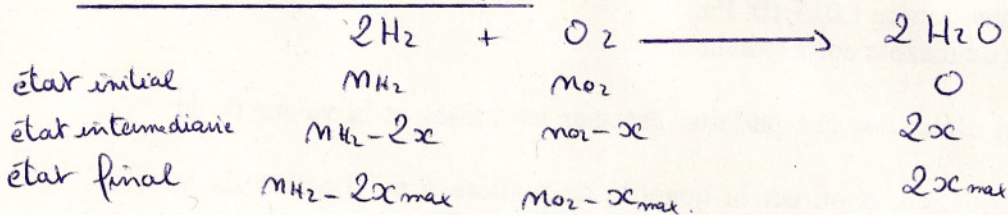 2H2 + O2 → 2H2O
état initial nH2 nO2 0
état intermediaire nH2-2x nO2-x 2x
état final nH2-2xmax nO2-xmax. 2xmax